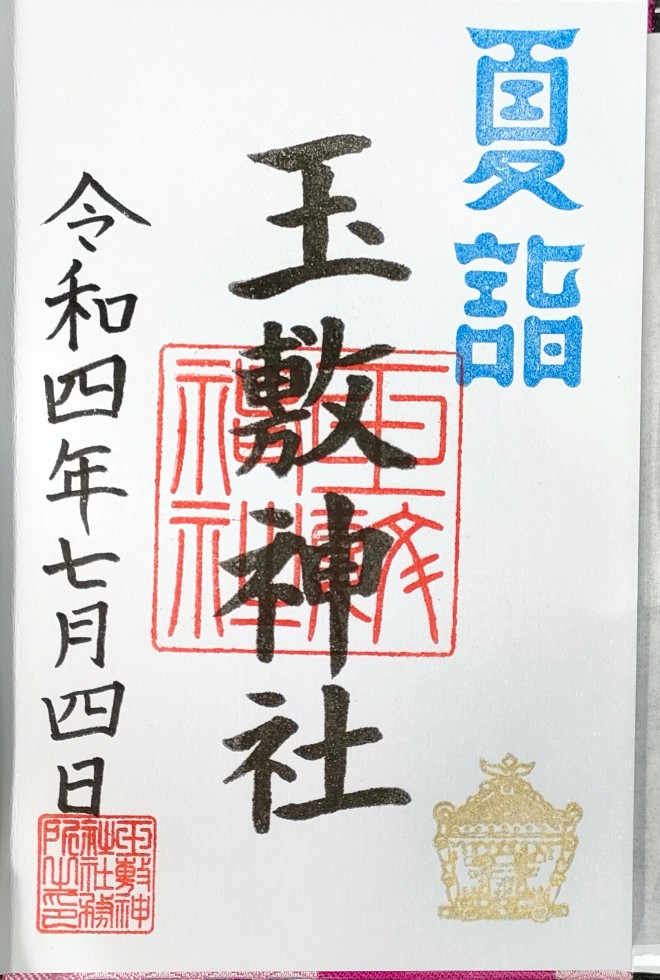 夏詣
玉敷神社
玉敷神社
令和四年七月四日
玉敷神社社務所之印